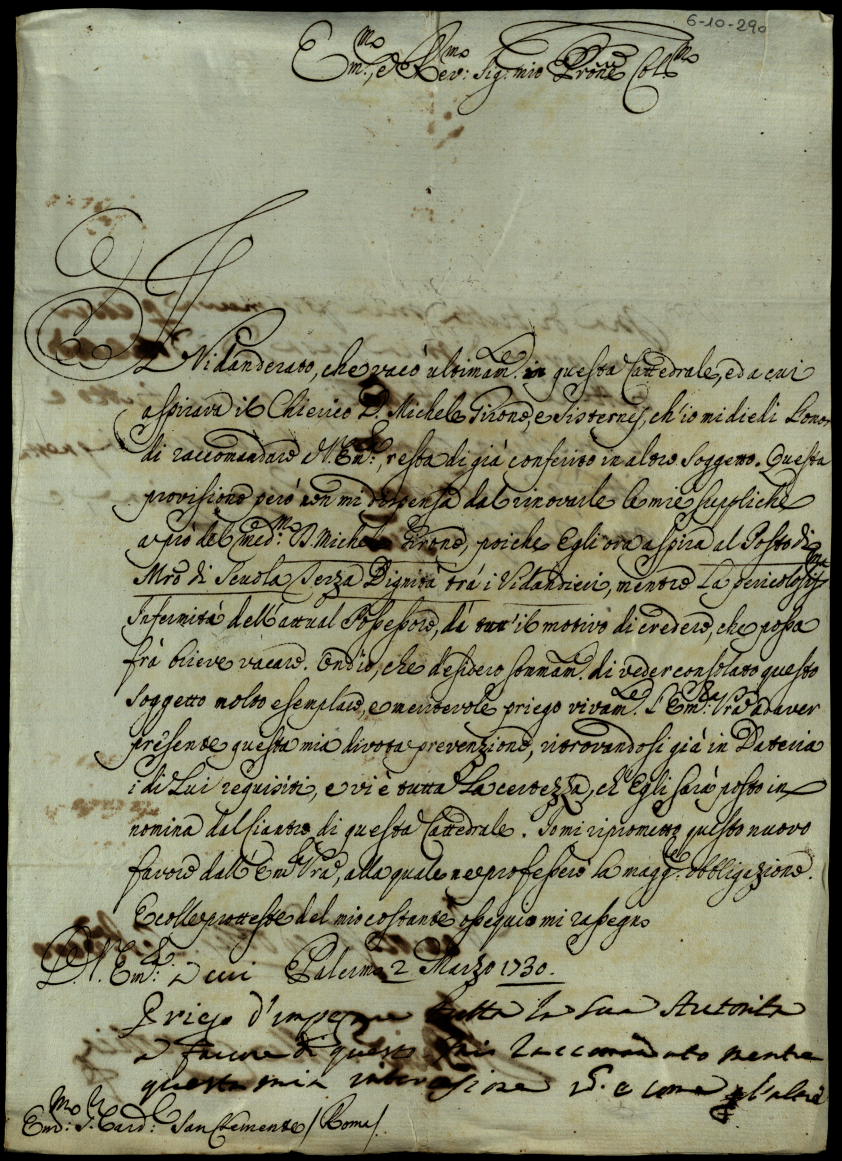 6-10-290
Em.mo, e Rev.mo Sig. mio Prōne Col.mo
Il Vidanderato, che vacò ultimam.te in questa Cattedrale, ed a cui
aspirava il Chierico D. Michele Girone, e Sisternes, ch'io mi diedi l'onor
di raccomandare a V. Em.za, resta di già conferito in altro soggetto. Questa
provisione però non mi dispensa dal rinovarle le mie suppliche
a prò del med.mo D. Michele Girone, poiche Egli ora aspira al Posto di
Mrō di Scuola Terza Dignità trà i Vidandieri, mentre la pericolosis.ma
Infermità dell'attual Possessore, dà tutt'il motivo di credere, che possa
frà brieve vacare. Ond'io, che desidero sommam. di veder consolato questo
soggetto molto esemplare, e meritevole priego vivam.te l'Em.za Vrā ad aver
presente questa mia divota prevenzione, ritrovandosi già in Dateria
i di Lui requisiti, e vi è tutta la certezza, ch'Egli sarà posto in
nomina dal Ciantro di questa Cattedrale. Io mi riprometto questo nuovo
favore dall'Em.za Vrā, alla quale ne professerò la magg.e obbligazione.
E colle proteste del mio costante ossequio mi rassegno
D. V. Em.za a cui Palermo 2 Marzo 1730.
Priego d'impegnare tutta la sua Autorità
a favore di questo mio raccomandato mentre
questa mia intercessione e come l'altre
Em.mo S. Card.l San Clemente / Roma /